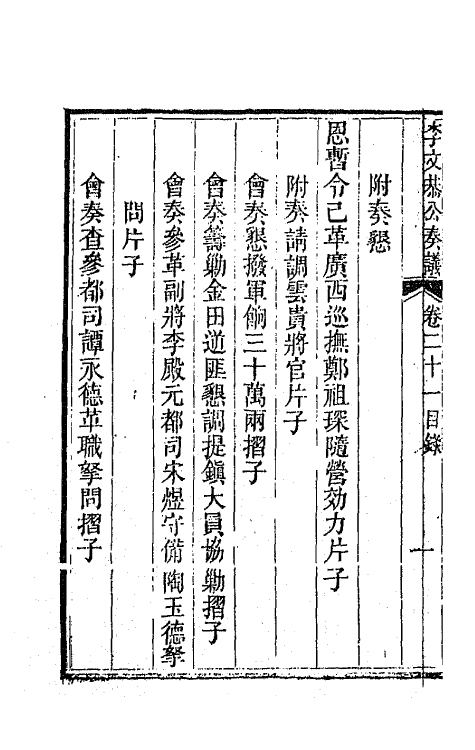 李文恭公奏議　卷二十一目錄　一
附奏懇
恩暫令已革廣西巡撫鄭祖琛隨營効力片子
附奏請調雲貴將官片子
會奏懇撥軍餉三十萬兩摺子
會奏籌勦金田逆匪懇調提鎭大員協勦摺子
會奏參革副將李殿元都司宋煜守備陶玉德拏
問片子
會奏查參都司譚永德革職拏問摺子